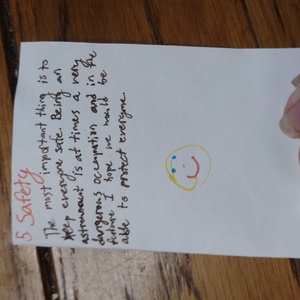 5. Safety
The most important thing is to
keep everyone safe. Being an
astronaut is at times a very
dangerous occupation and in the
future I hope we would be
able to protect everyone.